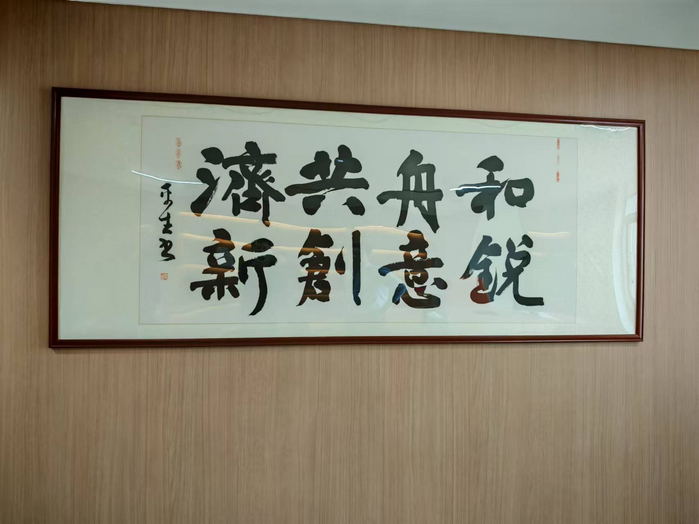 和銳
舟意
共創
濟新